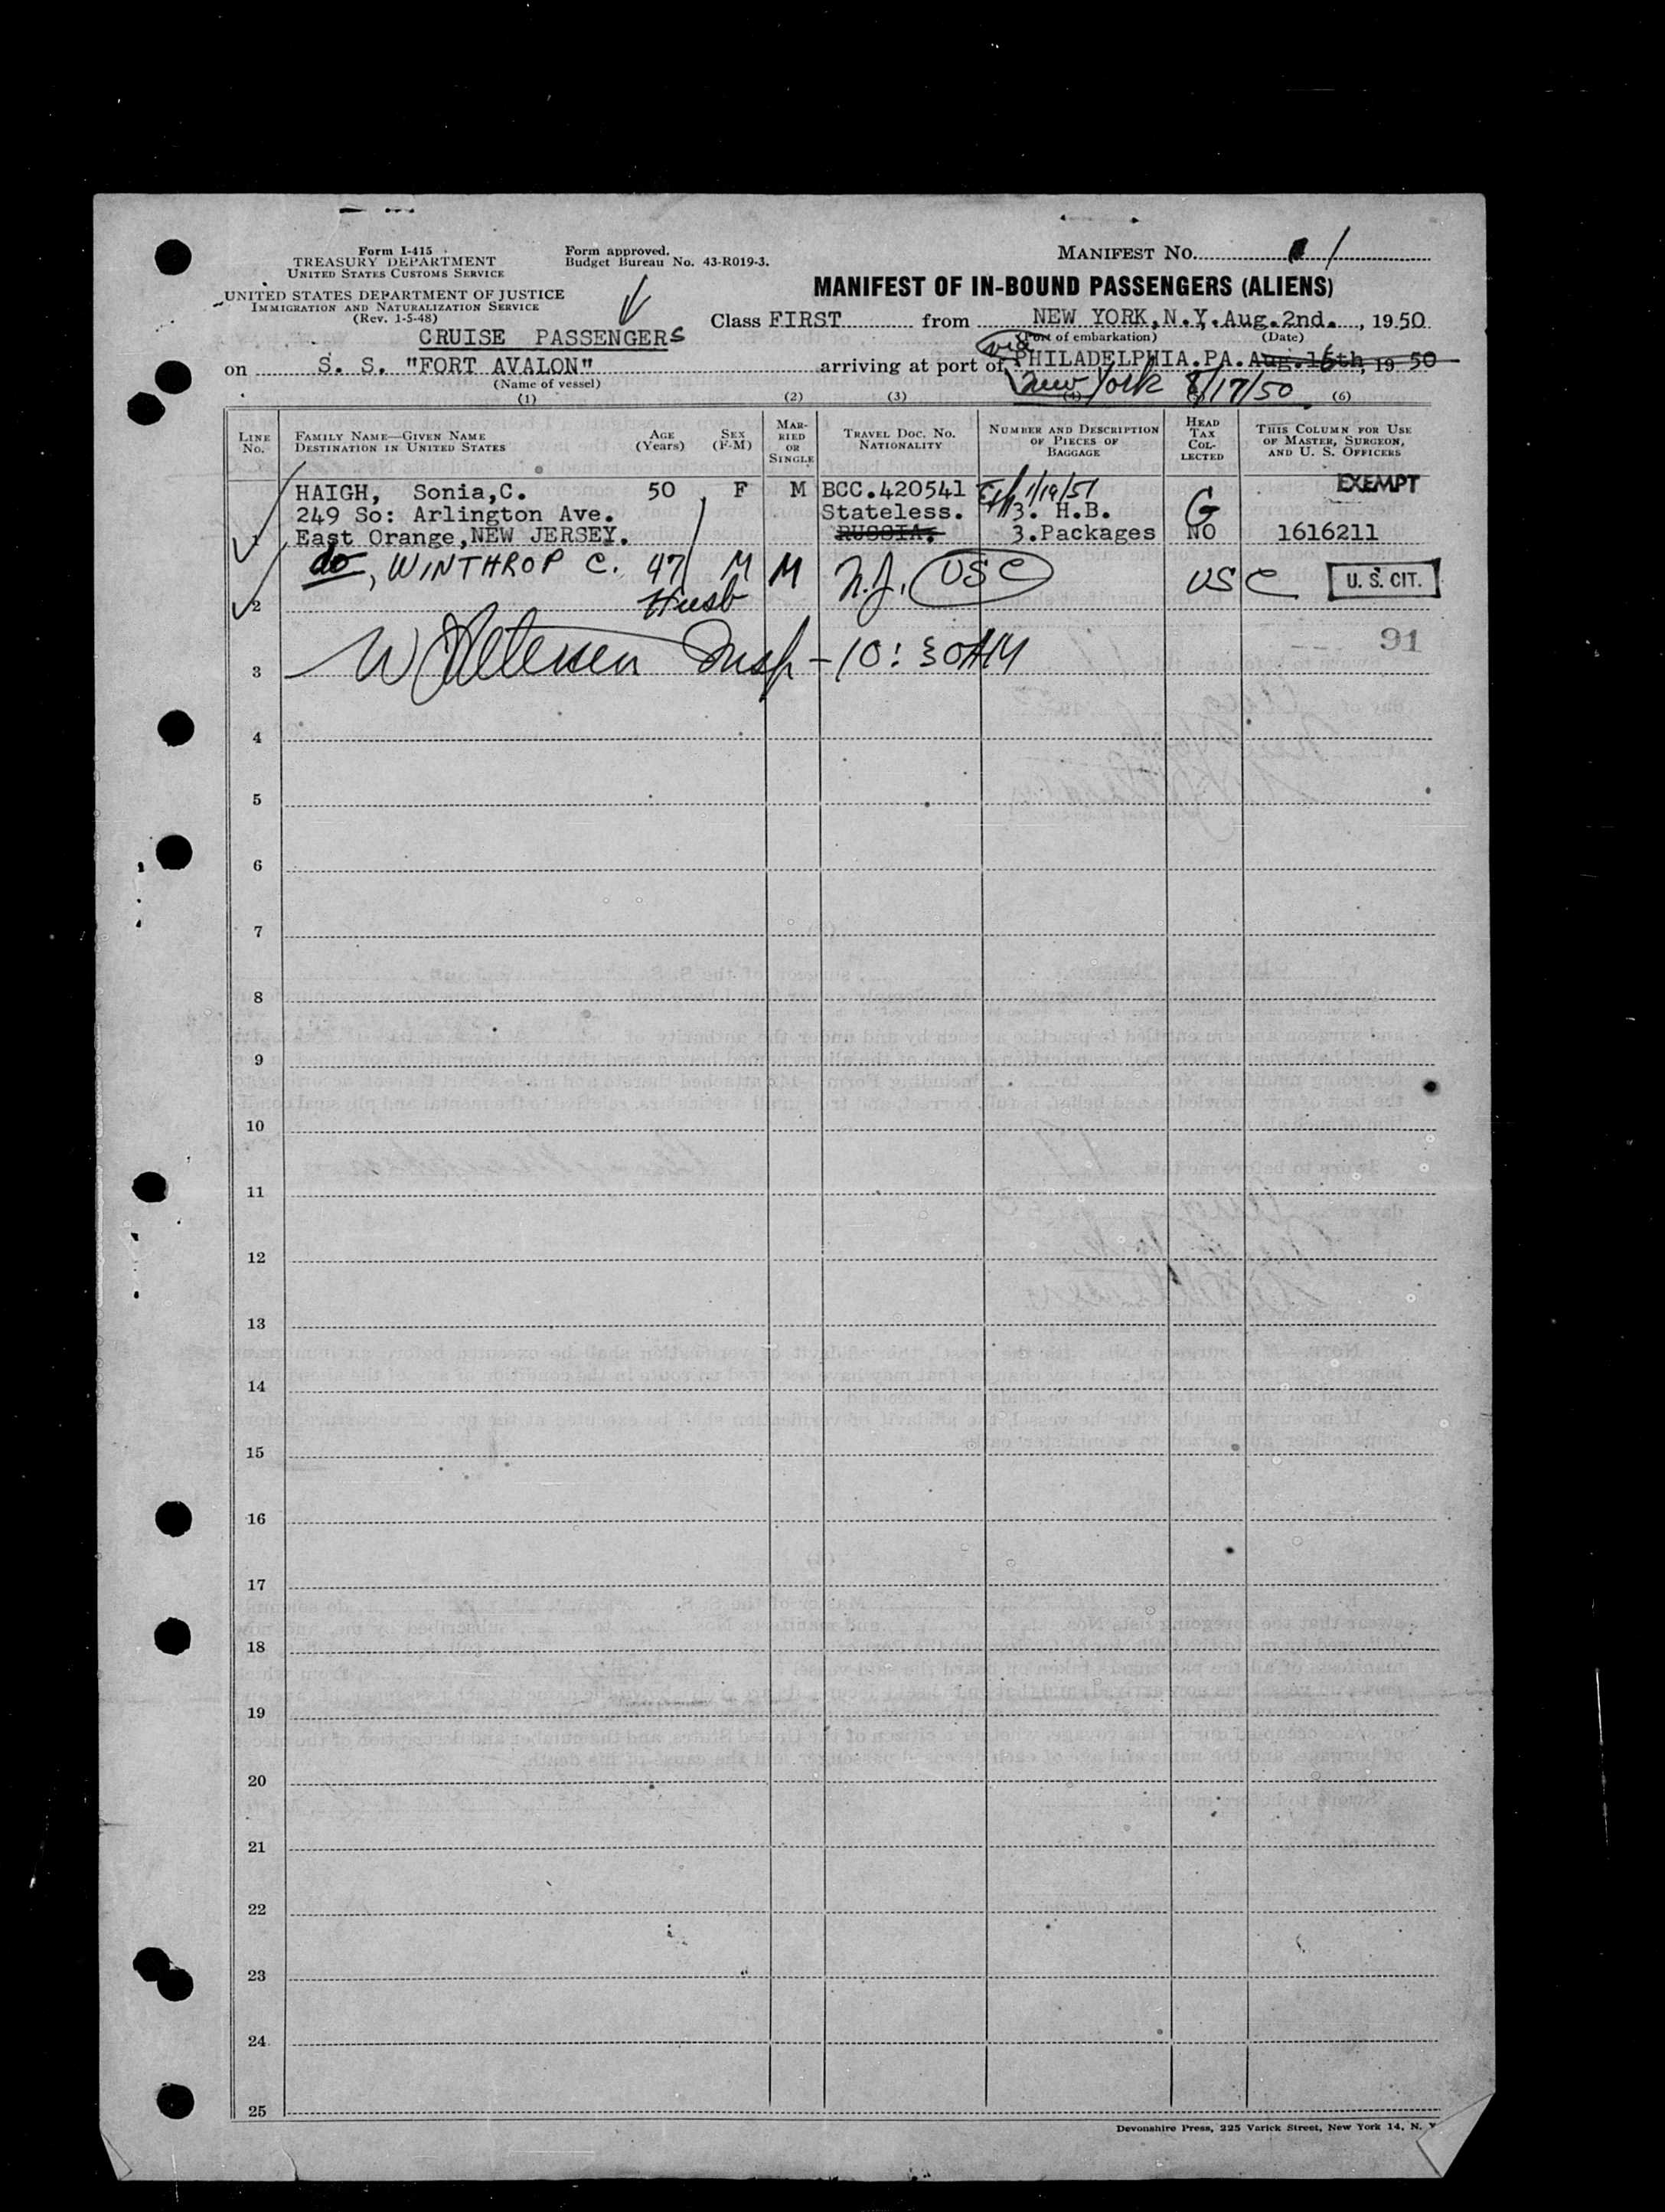 Form I-415
TREASURY DEPARTMENT
UNITED STATES CUSTOMS SERVICE
Form approved.
Budget Bureau No. 43-R019-3.
MANIFEST NO. 1
UNITED STATES DEPARTMENT OF JUSTICE
IMMIGRATION AND NATURALIZATION SERVICE
(Rev. 1-5-48)
MANIFEST OF IN-BOUND PASSENGERS (ALIENS)
CRUISE PASSENGERS
Class FIRST from NEW YORK,N.Y.Aug.2nd., 1950
(Port of embarkation) (Date)
on S. S. "FORT AVALON" arriving at port of via PHILADELPHIA.PA. Aug.16th, 19 50
(Name of vessel)
New York 8/17/50
(1) (2) (3) (4) (6)
LINE No.
FAMILY NAME—GIVEN NAME
DESTINATION IN UNITED STATES
AGE (Years)
SEX (F-M)
MARRIED OR SINGLE
TRAVEL DOC. NO. NATIONALITY
NUMBER AND DESCRIPTION OF PIECES OF BAGGAGE
HEAD TAX COLLECTED
THIS COLUMN FOR USE OF MASTER, SURGEON, AND U. S. OFFICERS
HAIGH, Sonia,C. 50 F M BCC.420541 1/19/51 EXEMPT
249 So: Arlington Ave. Stateless. 3. H.B. G
1 East Orange,NEW JERSEY. RUSSIA. 3.Packages NO 1616211
do, WINTHROP C. 47 M M N.J. USC USC U. S. CIT.
2 Husb
91
3 Insp - 10:30AM
4
5
6
7
8
9
10
11
12
13
14
15
16
17
18
19
20
21
22
23
24
25
Devonshire Press, 225 Varick Street, New York 14, N. Y